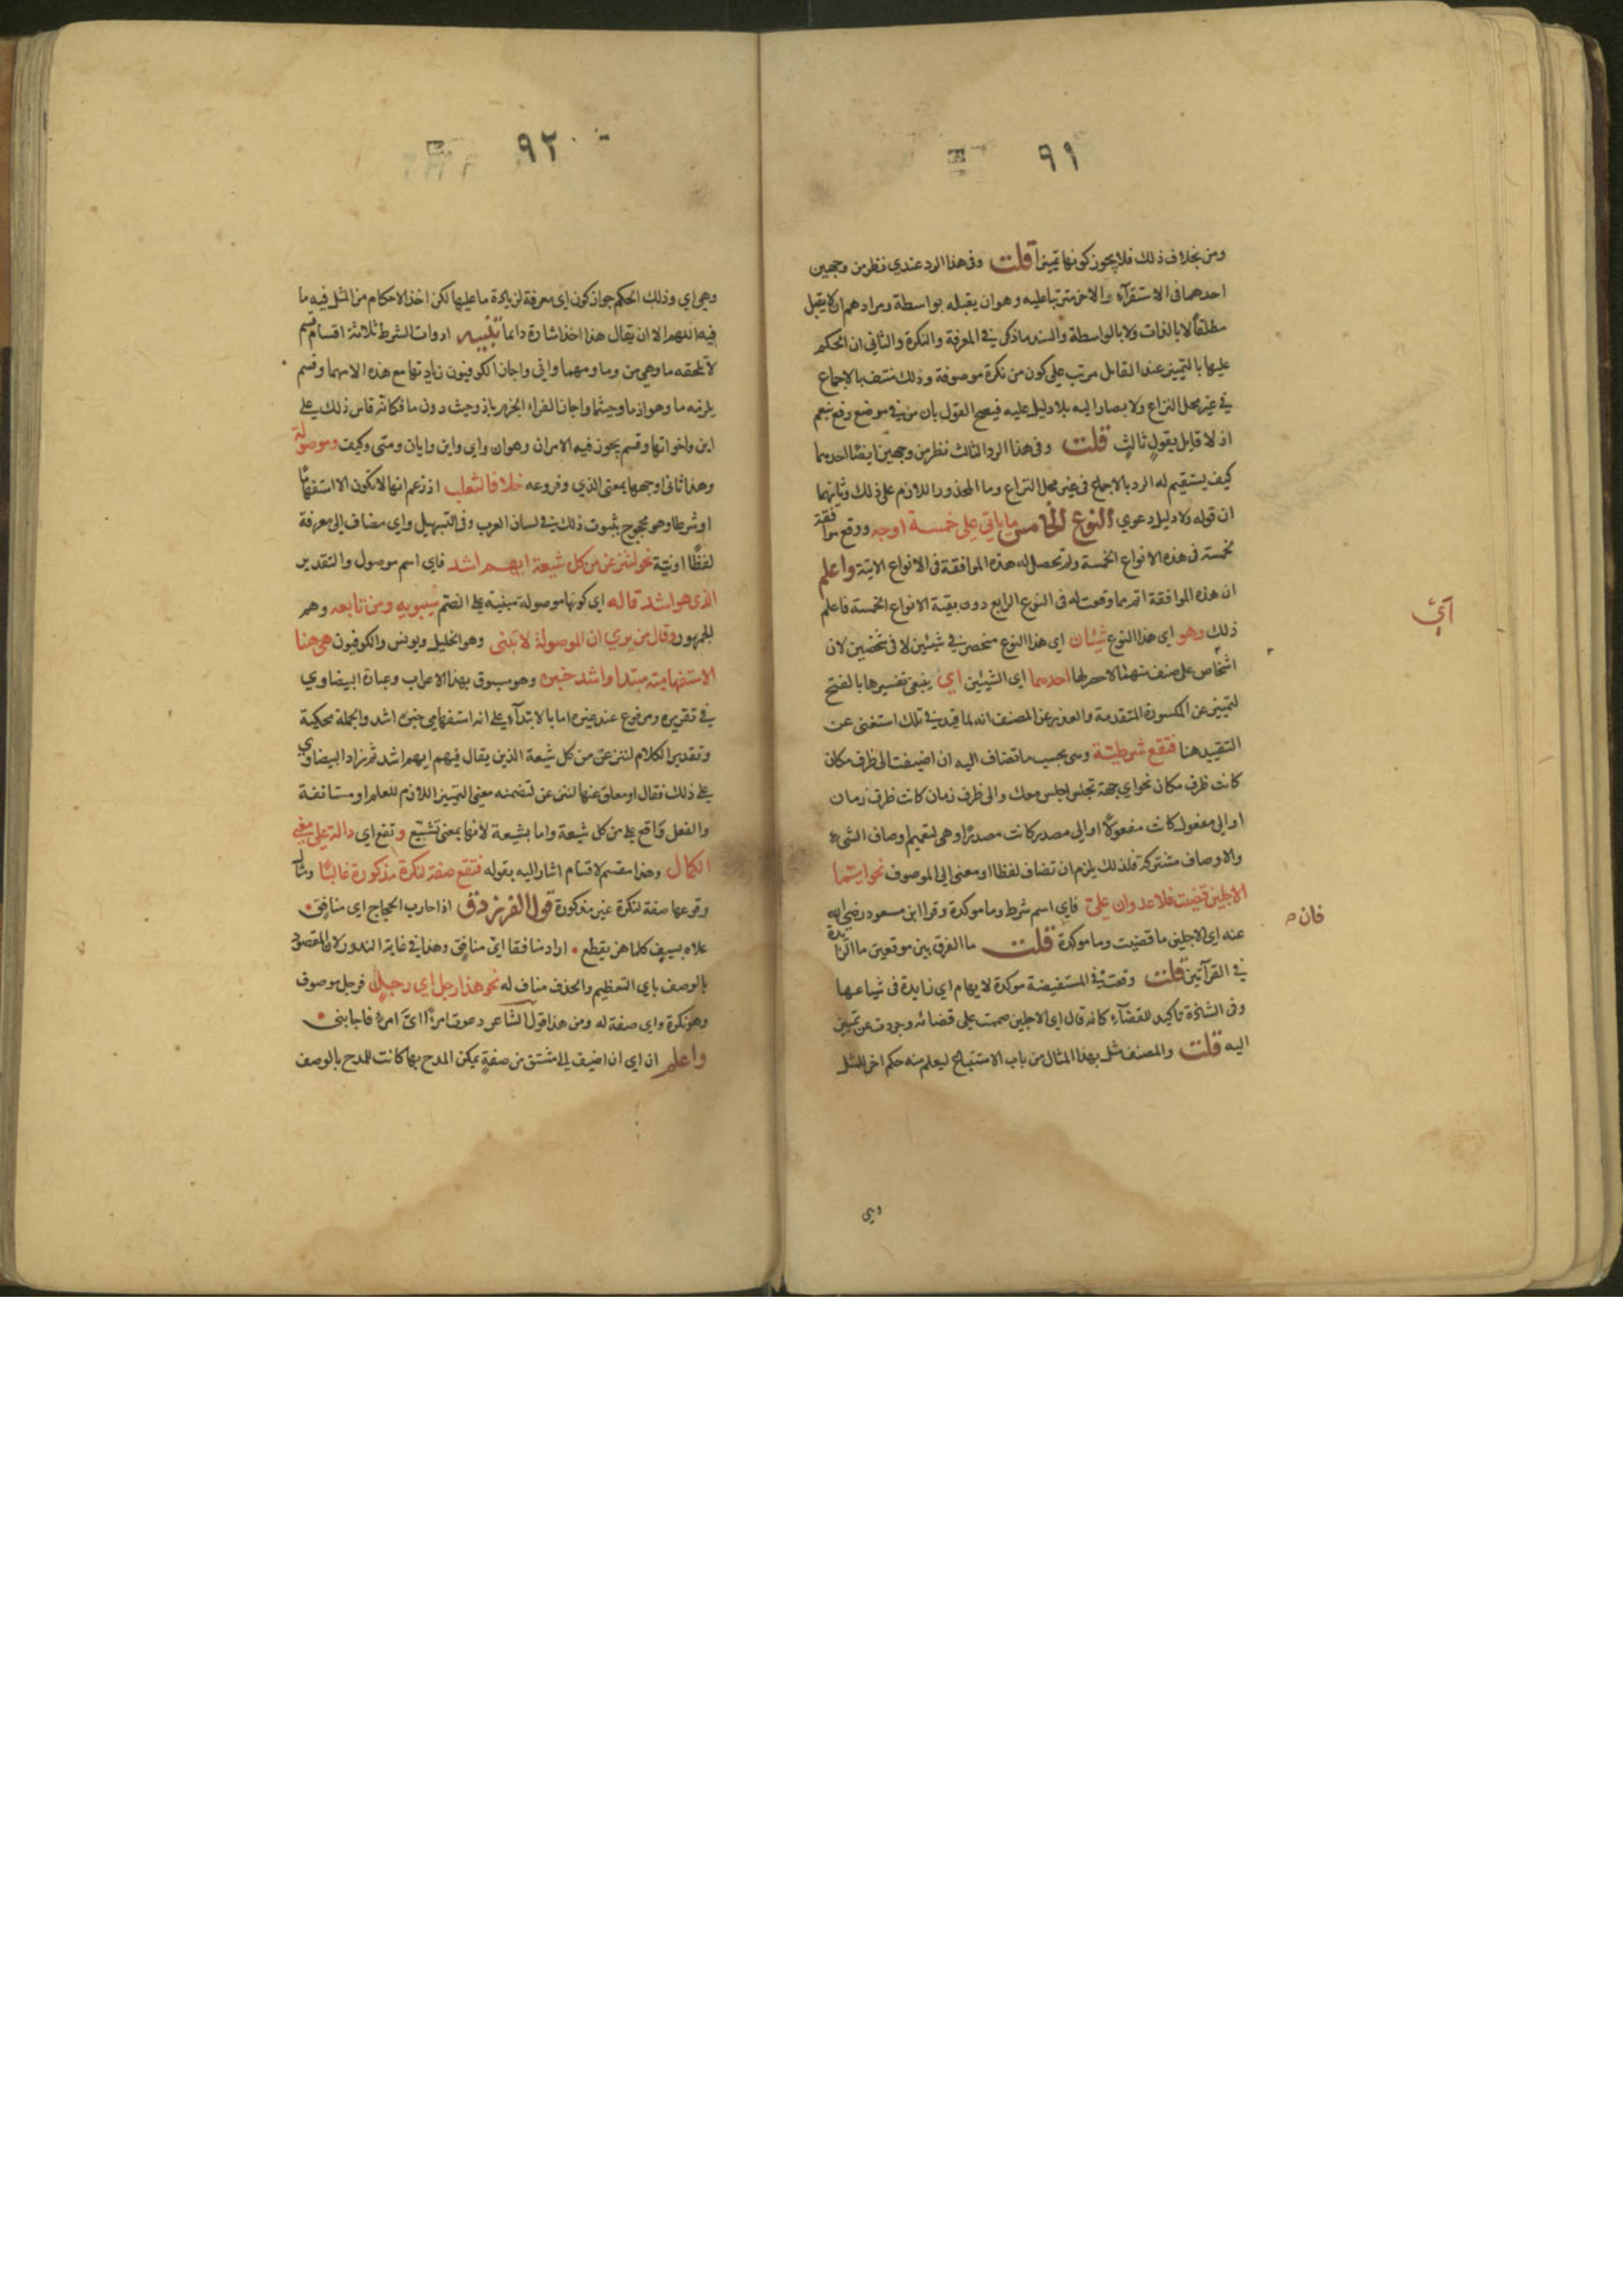 ٩١
ومن بخلاف ذلك فلا يجوز كونها تمييزا قلت وفى هذا الرد عندي نظر من وجهين
احدهما فى الاستقرآء والاخر مترتبا عليه وهو ان يقبله بواسطة ومرادهم ان لا يقبل
مطلقا لا بالذات ولا بالواسطة والسند ما ذكر فى المعرفة والنكرة والثانى ان الحكم
عليها بالتمييز عند القايل مرتب على كون من نكرة موصوفة وذلك منتف بالاجماع
فى غير محل النزاع ولا يصار اليه بلا دليل عليه فيصح القول بان من فى موضع رفع بنعم
اذ لا قايل بقول ثالث قلت وفى هذا الرد الثالث نظر من وجهين ايضا احدهما
كيف يستقيم له الرد بالاجماع فى غير محل النزاع وما المحذور اللازم على ذلك وثانيهما
ان قوله ولا دليل دعوي النوع الخامس ما ياتي على خمسة اوجه ووقع موافقة
خمسة فى هذه الانواع الخمسة ولم تحصل له هذه الموافقة فى الانواع الاتية واعلم
ان هذه الموافقة اتم مما وقعت له فى النوع الرابع دون بقية الانواع الخمسة فاعلم
ذلك وهو اي هذا النوع شيئان اي هذا النوع منحصر فى شيئين لا فى شخصين لان
اشخاص على صنف منهما لا حصر لها احدهما اي الشيئين اي ينبغى تفسيرها بالفتح
لتمييز عن المكسورة المتقدمة والعذر عن المصنف انه لما قيد فى تلك استغنى عن
التقييد هنا فتقع شرطية وهى بحسب ما تضاف اليه ان اضيفت الى ظرف مكان
كانت ظرف مكان نحو اي جهة تجلس اجلس معك والى ظرف زمان كانت ظرف زمان
او الي مفعول كانت مفعولا او الي مصدر كانت مصدرا وهى لتعميم اوصاف الشىء
والاوصاف مشتركة فلذلك يلزم ان تضاف لفظا او معنى الي الموصوف نحو ايتما
الاجلين قضيت فلا عدوان على فاي اسم شرط وما موكدة وقرا ابن مسعود رضي الله
عنه اي الاجلين ما قضيت وما موكدة قلت ما الفرق بين موقعين ما الزايدة
فى القرآتين قلت وقعت فى المستفيضة موكدة لابهام اي زايدة فى شياعها
وفى الشاذة تاكيد للقضآء كانه قال اي الاجلين صممت على قضائه وجردت عن تميين
اليه قلت والمصنف مثل بهذا المثال من باب الاستتباع ليعلم منه حكم اخر للمثل
وهى
أيّ
فان
٩٢
وهى اي وذلك الحكم جواز كون اي معرفة لزيادة ما عليها لكن اخذ الاحكام من المثل فيه ما
فيه اللهم الا ان يقال هذا اخذ اشارة دايما تنبيه ادوات الشرط ثلاثة اقسام قسم
لا تلحقه ما وهي من وما ومهما وانى واجاز الكوفيون زيادتها مع هذه الاسما وقسم
يلزمه ما وهو اذ ما وحيثما واجاز الفراء الجزم باذ وحيث دون ما فكانه قاس ذلك على
اين واخواتها وقسم يجوز فيه الامران وهو ان واي واين وايان ومتى وكيف وموصولة
وهذا ثانى اوجهها بمعنى الذي وفروعه خلافا لثعلب اذ زعم انها لا تكون الا استفهاما
او شرطا وهو محجوج بثبوت ذلك فى لسان العرب وفى التسهيل واي مضاف الى معرفة
لفظا او نية نحو لننزعن من كل شيعة ايهم اشد فاي اسم موصول والتقدير
الذى هو اشد قاله اي كونها موصولة مبنية على الضم سيبويه ومن تابعه وهم
الجمهور وقال من يري ان الموصولة لا تبنى وهو الخليل ويونس والكوفيون هى هنا
الاستفهامية مبتدا واشد خبره وهو مسبوق بهذا الاعراب وعبارة البيضاوي
فى تقريره ومرفوع عند غيره اما بالابتدآء على انه استفهامى خبره اشد والجملة محكية
وتقدير الكلام لننزعن من كل شيعة الذين يقال فيهم ايهم اشد ثم زاد البيضاوي
على ذلك فقال او معلق عنها لننزعن لتضمنه معنى التمييز اللازم للعلم او مستانفة
والفعل واقع على من كل شيعة واما بشيعة لانها بمعنى تشيع وتقع اي دالة على معنى
الكمال وهذا مقسم لاقسام اشار اليه بقوله فتقع صفة لنكرة مذكورة غالبا ومثال
وقوعها صفة لنكرة غير مذكورة قول الفرزدق اذا حارب الحجاج اي منافق
علاه بسيف كلما هز يقطع اراد منافقا اي منافق وهذا فى غاية الندور لان المقصود
بالوصف باي التعظيم والحذف مناف له نحو هذا رجل اي رجل فرجل موصوف
وهو نكرة واي صفة له ومن هذا قول الشاعر دعوت امرءًا اىّ امرء فاجابنى
واعلم ان اي ان اضيف الى مشتق من صفة يمكن المدح بها كانت للمدح بالوصف